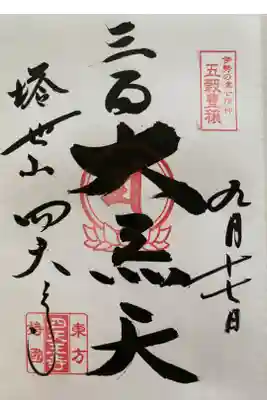 伊勢の津七福神
五穀豊穣
九月十七日
三面大黒天
塔世山 四天王寺
東方
四天王寺